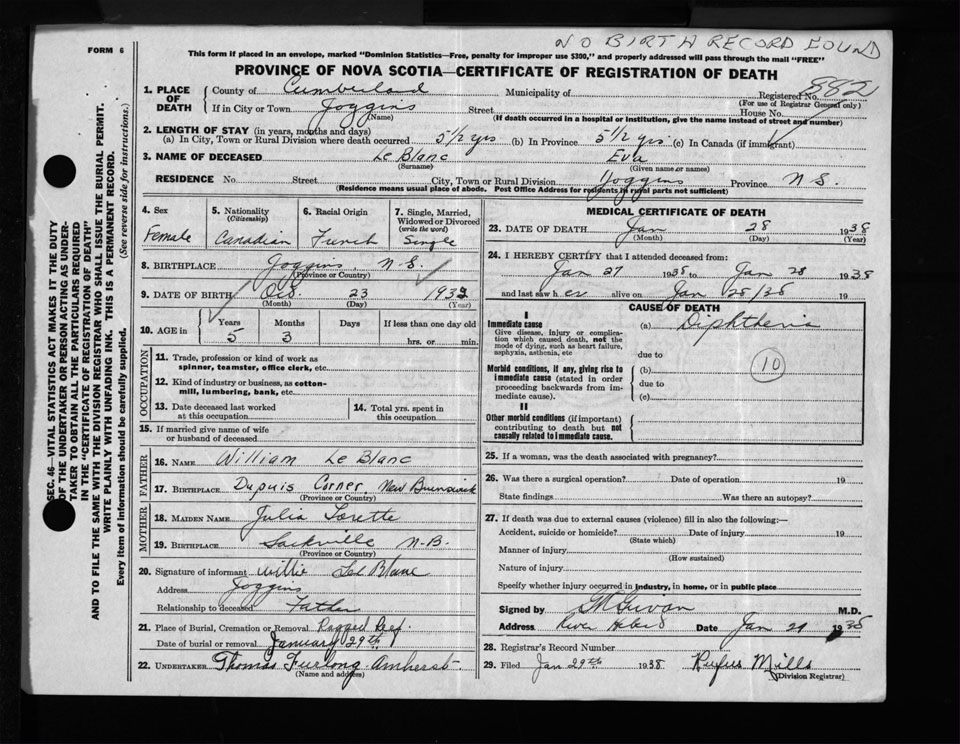 NO BIRTH RECORD FOUND
FORM 6
This form if placed in an envelope, marked "Dominion Statistics—Free, penalty for improper use $300," and properly addressed will pass through the mail "FREE"
PROVINCE OF NOVA SCOTIA—CERTIFICATE OF REGISTRATION OF DEATH
SEC. 46—VITAL STATISTICS ACT MAKES IT THE DUTY
OF THE UNDERTAKER OR PERSON ACTING AS UNDER-
TAKER TO OBTAIN ALL THE PARTICULARS REQUIRED
IN THE "CERTIFICATE OF REGISTRATION OF DEATH"
AND TO FILE THE SAME WITH THE DIVISION REGISTRAR WHO SHALL ISSUE THE BURIAL PERMIT.
WRITE PLAINLY WITH UNFADING INK. THIS IS A PERMANENT RECORD.
Every item of information should be carefully supplied. (See reverse side for instructions.)
1. PLACE OF DEATH
County of Cumberland Municipality of Registered No. 882
(For use of Registrar General only)
If in City or Town Joggins Street House No.
(Name) (If death occurred in a hospital or institution, give the name instead of street and number)
2. LENGTH OF STAY (in years, months and days)
(a) In City, Town or Rural Division where death occurred 5 1/2 yrs (b) In Province 5 1/2 yrs (c) In Canada (if immigrant)
3. NAME OF DECEASED Le Blanc Eva
(Surname) (Given name or names)
RESIDENCE No. Street City, Town or Rural Division Joggins Province N S.
(Residence means usual place of abode. Post Office Address for residents in rural parts not sufficient)
4. Sex
Female
5. Nationality
(Citizenship)
Canadian
6. Racial Origin
French
7. Single, Married,
Widowed or Divorced
(write the word)
Single
8. BIRTHPLACE Joggins, N-S.
(Province or Country)
9. DATE OF BIRTH Oct. 23 1932
(Month) (Day) (Year)
10. AGE in
Years Months Days If less than one day old
5 3 hrs. or min.
OCCUPATION
11. Trade, profession or kind of work as
spinner, teamster, office clerk, etc.
12. Kind of industry or business, as cotton-
mill, lumbering, bank, etc.
13. Date deceased last worked
at this occupation
14. Total yrs. spent in
this occupation
15. If married give name of wife
or husband of deceased
FATHER
16. NAME William Le Blanc
17. BIRTHPLACE Dupuis Corner, New Brunswick
(Province or Country)
MOTHER
18. MAIDEN NAME Julia Sorette
19. BIRTHPLACE Sackville N-B.
(Province or Country)
20. Signature of informant Willie Le Blanc
Address Joggins
Relationship to deceased Father
21. Place of Burial, Cremation or Removal Ragged Reef.
Date of burial or removal January 29th
22. UNDERTAKER Thomas Furlong Amherst.
(Name and address)
MEDICAL CERTIFICATE OF DEATH
23. DATE OF DEATH Jan 28 1938
(Month) (Day) (Year)
24. I HEREBY CERTIFY that I attended deceased from:
Jan 27 1938 to Jan 28 1938
and last saw her alive on Jan 28/38 19
CAUSE OF DEATH
I
Immediate cause
Give disease, injury or complica-
tion which caused death, not the
mode of dying, such as heart failure,
asphyxia, asthenia, etc
(a) Diphtheria
due to
10
Morbid conditions, if any, giving rise to
immediate cause (stated in order
proceeding backwards from im-
mediate cause).
(b)
due to
(c)
II
Other morbid conditions (if important)
contributing to death but not
causally related to immediate cause.
25. If a woman, was the death associated with pregnancy?
26. Was there a surgical operation? Date of operation 19
State findings Was there an autopsy?
27. If death was due to external causes (violence) fill in also the following:—
Accident, suicide or homicide? Date of injury 19
(State which)
Manner of injury
(How sustained)
Nature of injury
Specify whether injury occurred in industry, in home, or in public place
Signed by M.D.
Address River Hebert Date Jan 29 1938
28. Registrar's Record Number
29. Filed Jan 29th 1938 Rufus Mills
(Division Registrar)